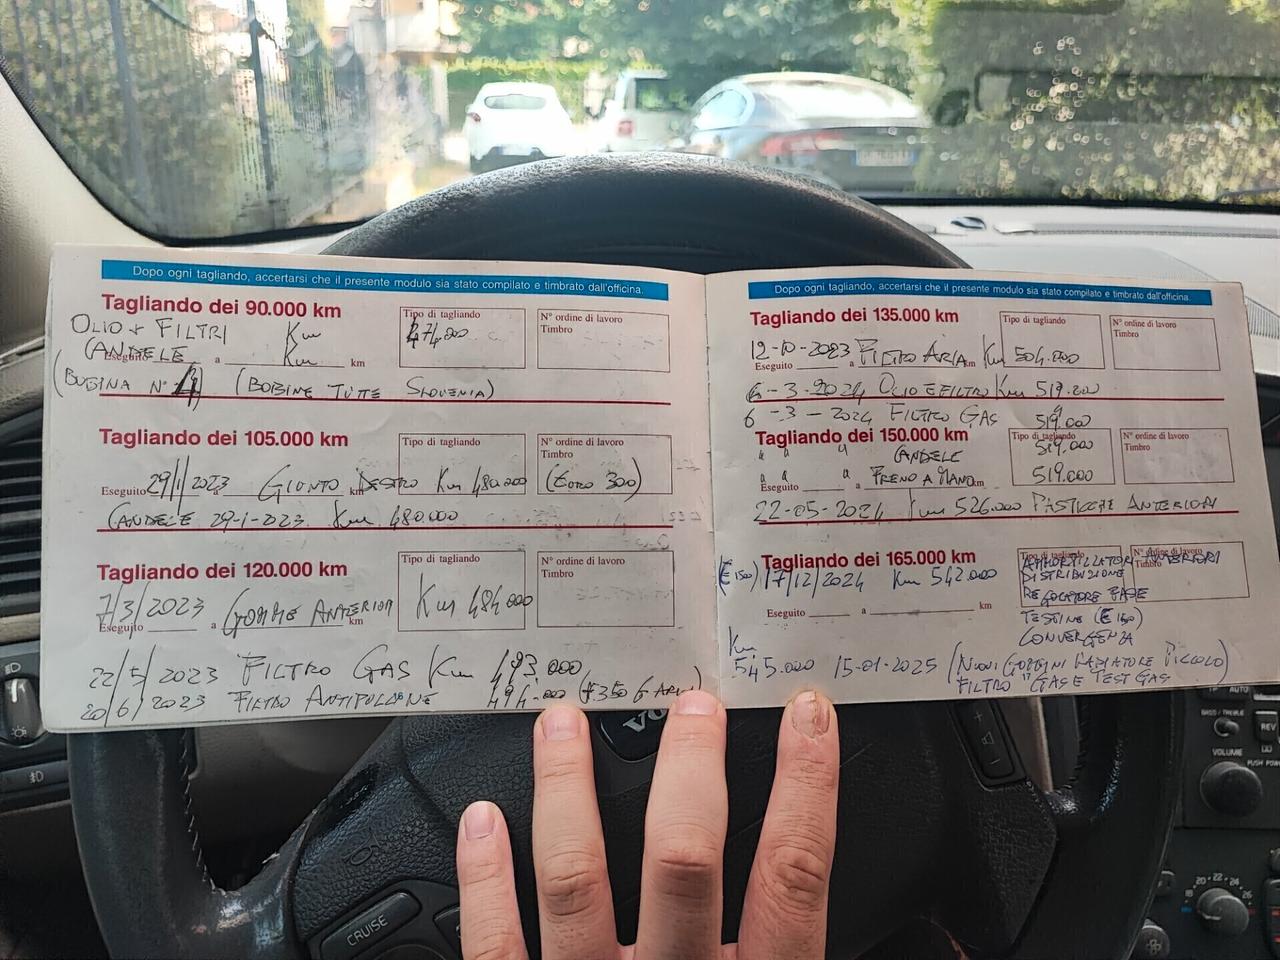 Dopo ogni tagliando, accertarsi che il presente modulo sia stato compilato e timbrato dall'officina.
Tagliando dei 90.000 km
Tipo di tagliando
N° ordine di lavoro
Timbro
OLIO + FILTRI Km 474.000
CANDELE Km
Eseguito a km
(BOBINA N° 4) (BOBINE TUTTE SLOVENIA)
Tagliando dei 105.000 km
Tipo di tagliando
N° ordine di lavoro
Timbro
Eseguito 29/1/2023 GIUNTO DESTRO Km 480.000 (EURO 300)
CANDELE 29-1-2023 Km 480.000
Tagliando dei 120.000 km
Tipo di tagliando
N° ordine di lavoro
Timbro
7/3/2023 GOMME ANTERIORI Km 484.000
Eseguito a km
22/5/2023 FILTRO GAS Km 493.000
20/6/2023 494.000
Dopo ogni tagliando, accertarsi che il presente modulo sia stato compilato e timbrato dall'officina.
Tagliando dei 135.000 km
Tipo di tagliando
N° ordine di lavoro
Timbro
12-10-2023 ARIA Km 504.000
Eseguito a km
6-3-2024 OLIO E FILTRO Km 519.000
6-3-2024 FILTRO GAS 519.000
Tagliando dei 150.000 km
Tipo di tagliando
N° ordine di lavoro
Timbro
" " " CANDELE 519.000
" " " FRENO A MANO 519.000
Eseguito km
22-05-2024 Km 526.000 PASTICCHE ANTERIORI
Tagliando dei 165.000 km
Tipo di tagliando
N° ordine di lavoro
Timbro
(€ 1500) 17/12/2024 Km 542.000 AMMORTIZZATORI ANTERIORI
DISTRIBUZIONE
REGOLATORE FASE
Eseguito a km
TESTINE (€ 150)
CONVERGENZA
Km
545.000 15-01-2025 (NUOVI RADIATORE PICCOLO)
FILTRO GAS E TEST GAS
CRUISE
AUTO
BASS/TREBLE
REV
VOLUME
18 20 22 24 26